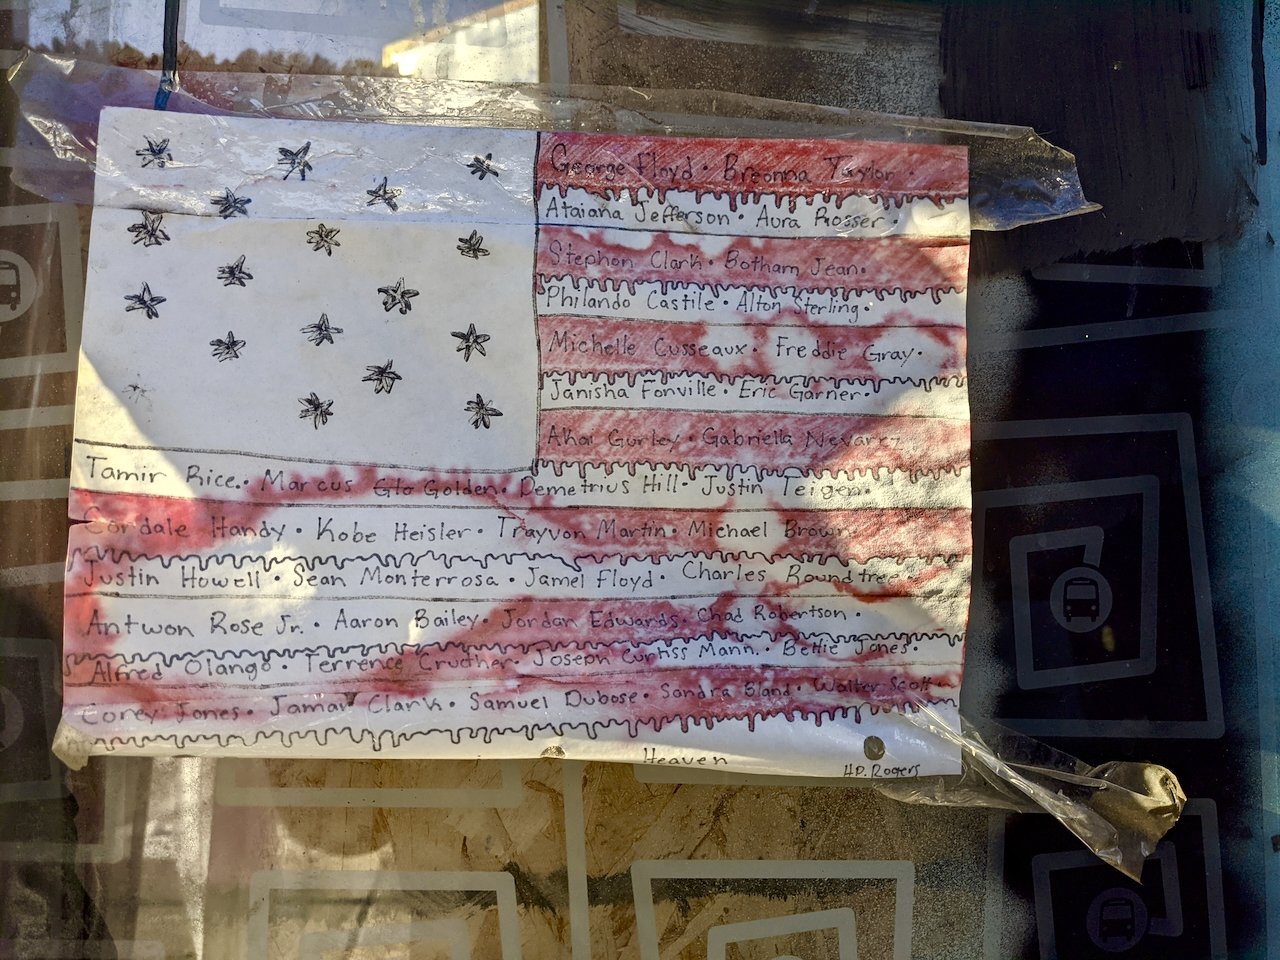 George Floyd · Breonna Taylor ·
Ataiana Jefferson · Aura Rosser ·
Stephon Clark · Botham Jean ·
Philando Castile · Alton Sterling ·
Michelle Cusseaux · Freddie Gray ·
Janisha Fonville · Eric Garner ·
Akai Gurley · Gabriella Nevarez
Tamir Rice · Marcus Glo Golden · Demetrius Hill · Justin Teigen ·
Cordale Handy · Kobe Heisler · Trayvon Martin · Michael Brown
Justin Howell · Sean Monterrosa · Jamel Floyd · Charles Roundtree
Antwon Rose Jr. · Aaron Bailey · Jordan Edwards · Chad Robertson ·
Alfred Olango · Terrence Cruther · Joseph Curtiss Mann · Bettie Jones ·
Corey Jones · Jamar Clark · Samuel Dubose · Sandra Bland · Walter Scott
Heaven
H.P. Rogers